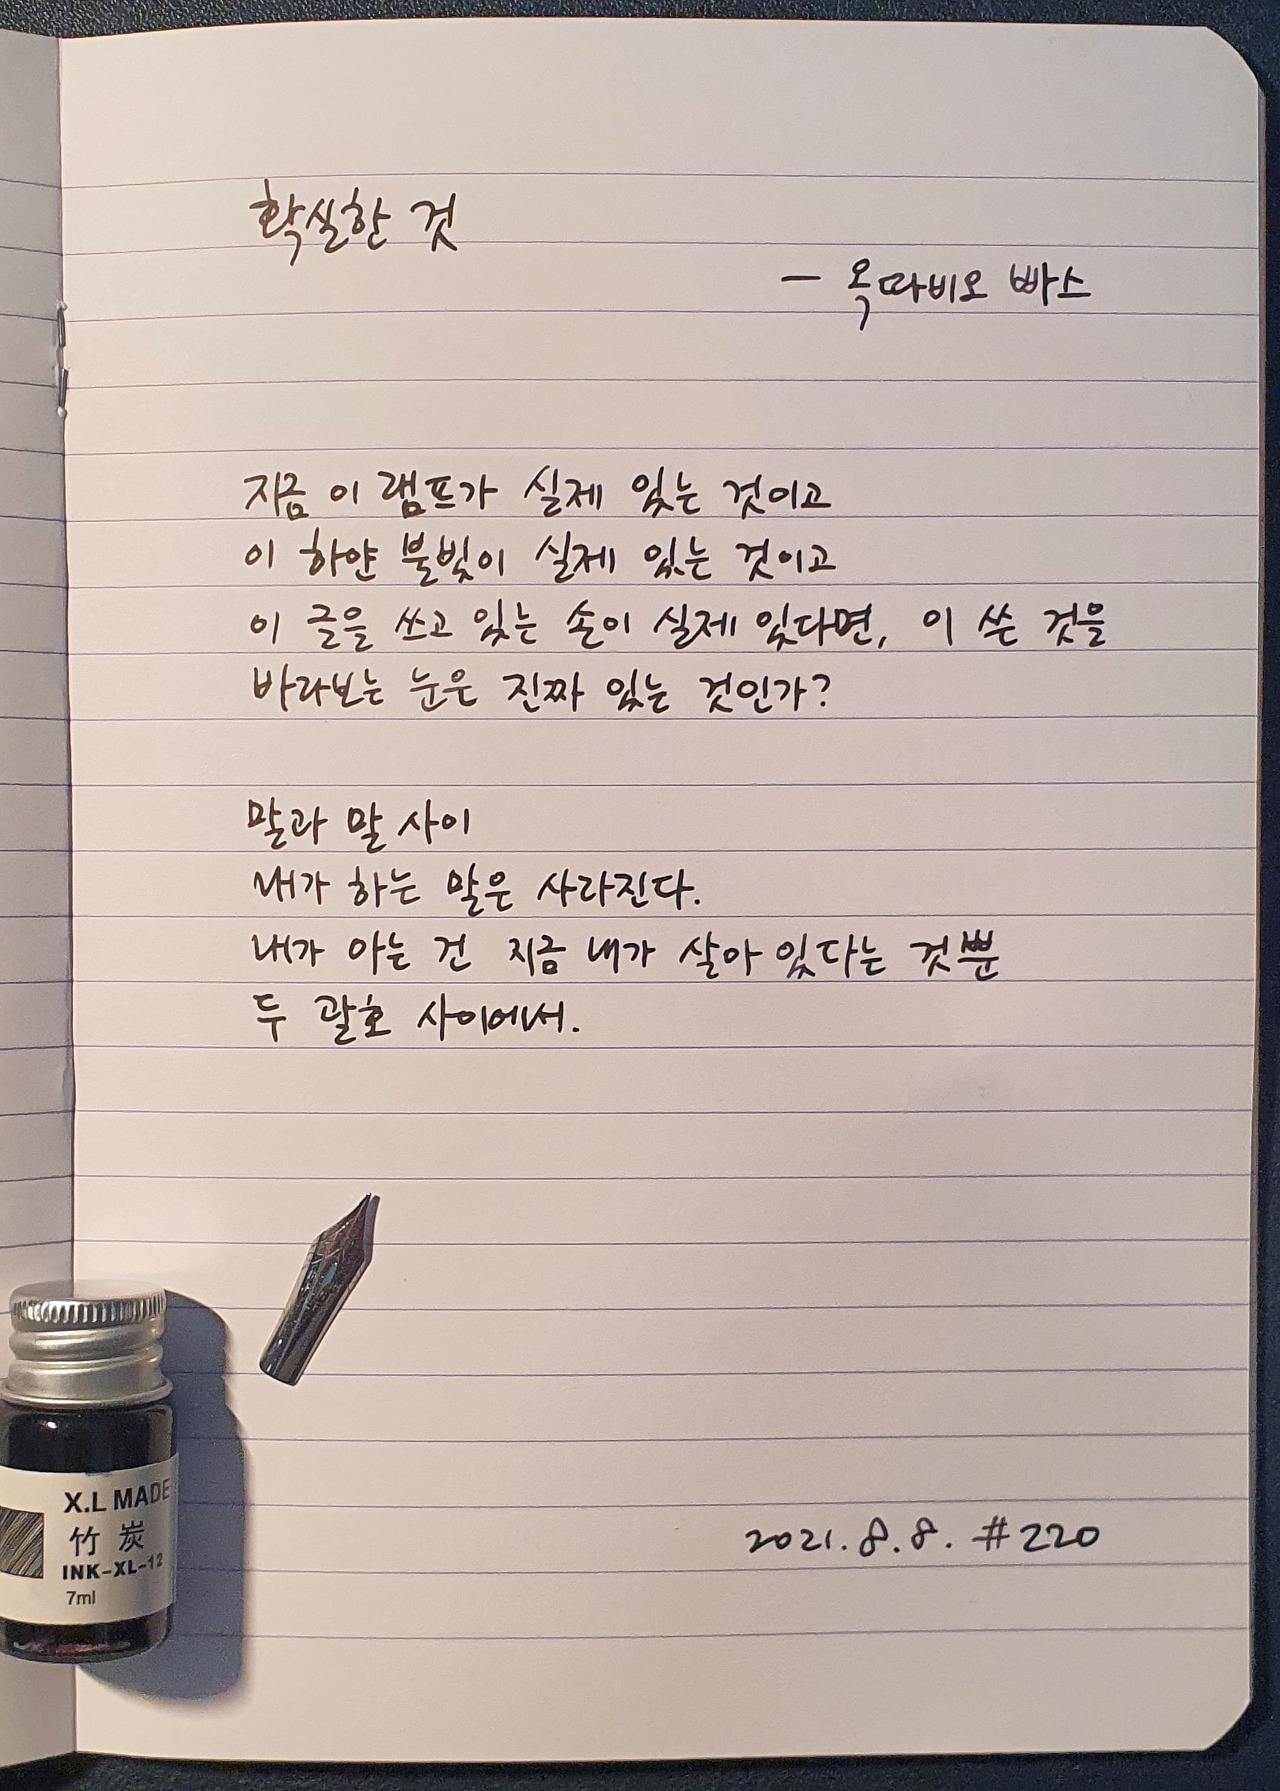 확실한 것
— 옥따비오 빠스
지금 이 램프가 실제 있는 것이고
이 하얀 불빛이 실제 있는 것이고
이 글을 쓰고 있는 손이 실제 있다면, 이 쓴 것을
바라보는 눈은 진짜 있는 것인가?
말과 말 사이
내가 하는 말은 사라진다.
내가 아는 건 지금 내가 살아 있다는 것뿐
두 괄호 사이에서.
X.L MADE
竹炭
INK-XL-12
7ml
2021.8.8. #220